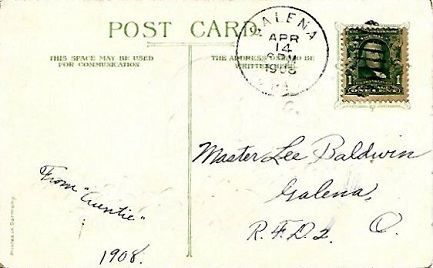 POST CARD
THIS SPACE MAY BE USED
FOR COMMUNICATION
THE ADDRESS ONLY TO BE
WRITTEN HERE
GALENA
APR
14
1908
1
From "Auntie"
1908.
Master Lee Baldwin
Galena,
R.F.D.2. O.
Printed in Germany